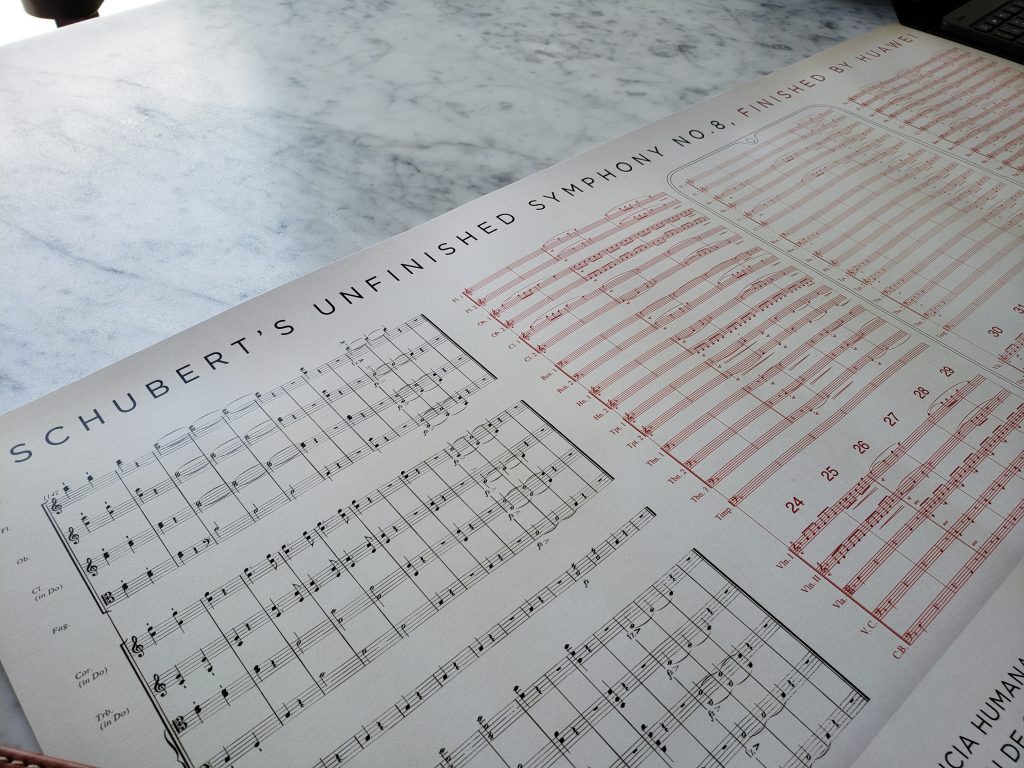 SCHUBERT'S UNFINISHED SYMPHONY NO.8, FINISHED BY HUAWEI
Fl.
Ob.
Cl.
(in Do)
Fag.
Cor.
(in Do)
Trb.
(in Do)
Fl.
Ob.
Cl.
Bsn.
Hn. 2
Tpt.
Tbn. 2
Tbn. 3
Timp.
24 25 26 27 28 29
30 31
Vln. I
Vln. II
Vla.
V. C.
C.B.
CIA HUMANA
DE